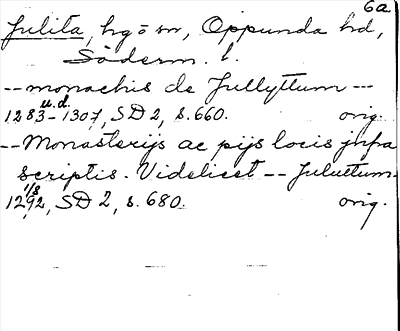 6a
Julita, hg o sn, Oppunda hd,
Söderm. l.
-- monachis de Jullyttum --
u.d.
1283-1307, SD 2, s. 660. orig.
-- Monasterijs ac pijs locis jnfra
scriptis. Videlicet -- Juluttum.
1/8
1292, SD 2, s. 680. orig.